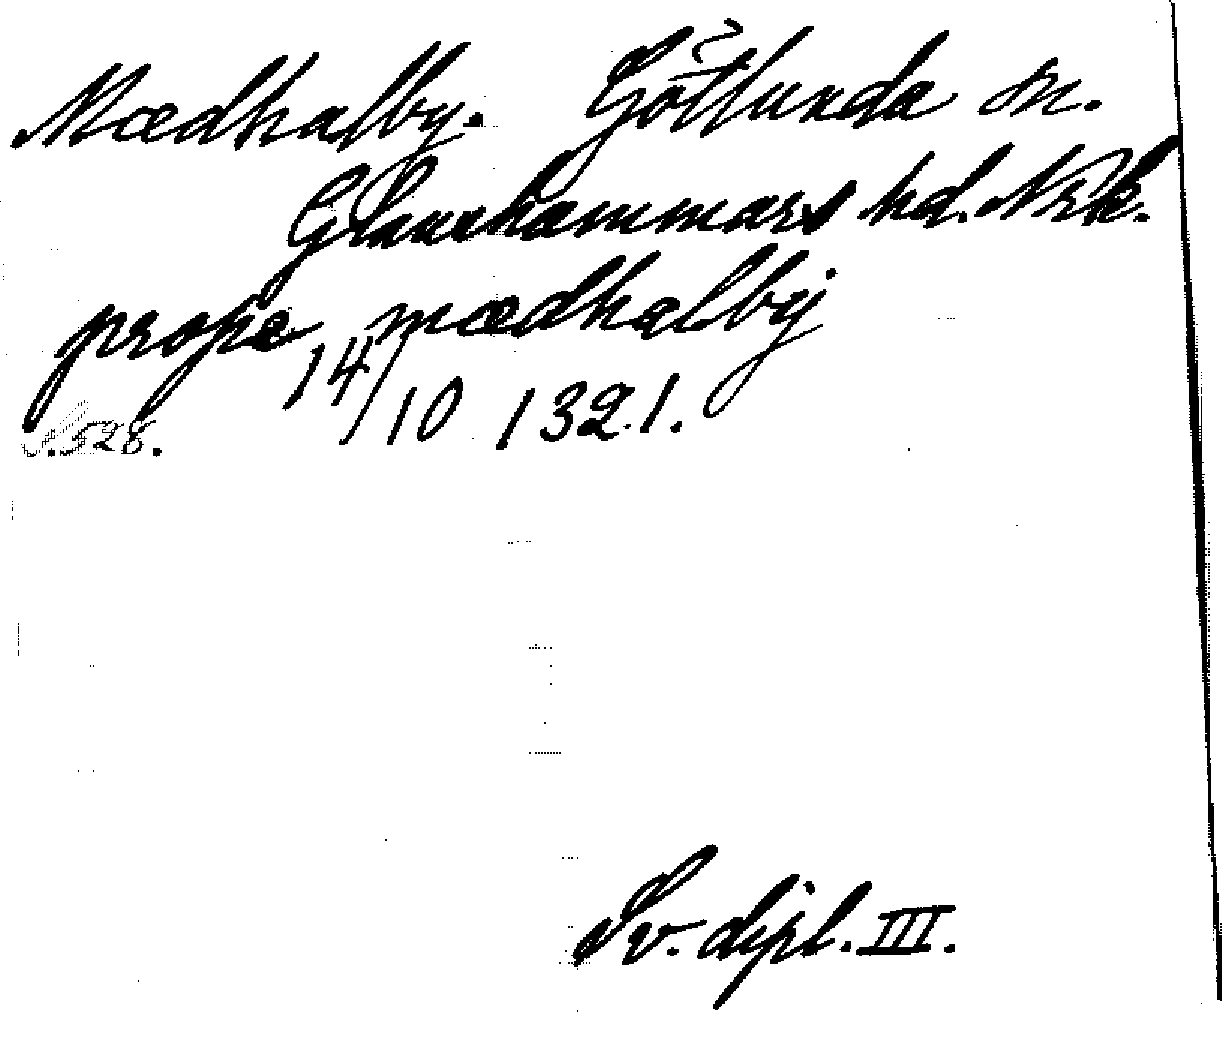 Mædhalby. Götlunda sn.
Glanshammars hd. Nrk.
prope mædhalby
14/10 1321.
S. 528.
Sv. dipl. III.